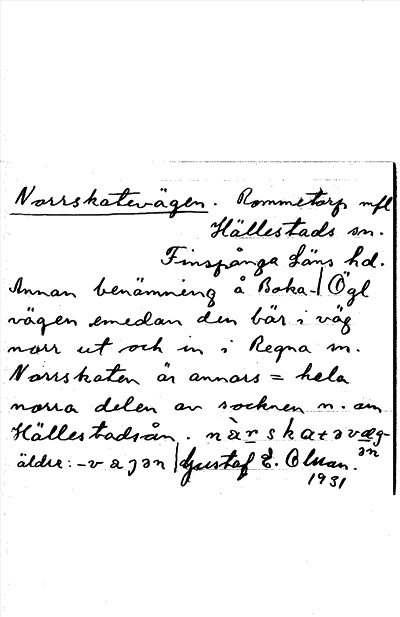 Norrskatevägen. Rommetorp mfl
Hällestads sn.
Finspånga Läns hd.
Annan benämning å Boka- | Ögl
vägen emedan den bär i väg
norr ut och in i Regna sn.
Norrskaten är annars = hela
norra delen av socknen n. om
Hällestadsån. nàrskatəvæg-
ən
äldre: -vaʒən | Gustaf E. Olman.
1931